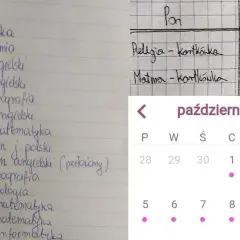 ka
mia
ngielski
gielski
ografia
ngielski
atematyka
n j. polski
n angielski (połączony)
eografia
ologia
atematyka
atematyka
nformatyka
Pon
Religia - kartkówka
Matma - kartkówka
październ
P W Ś C
28 29 30 1
5 6 7 8